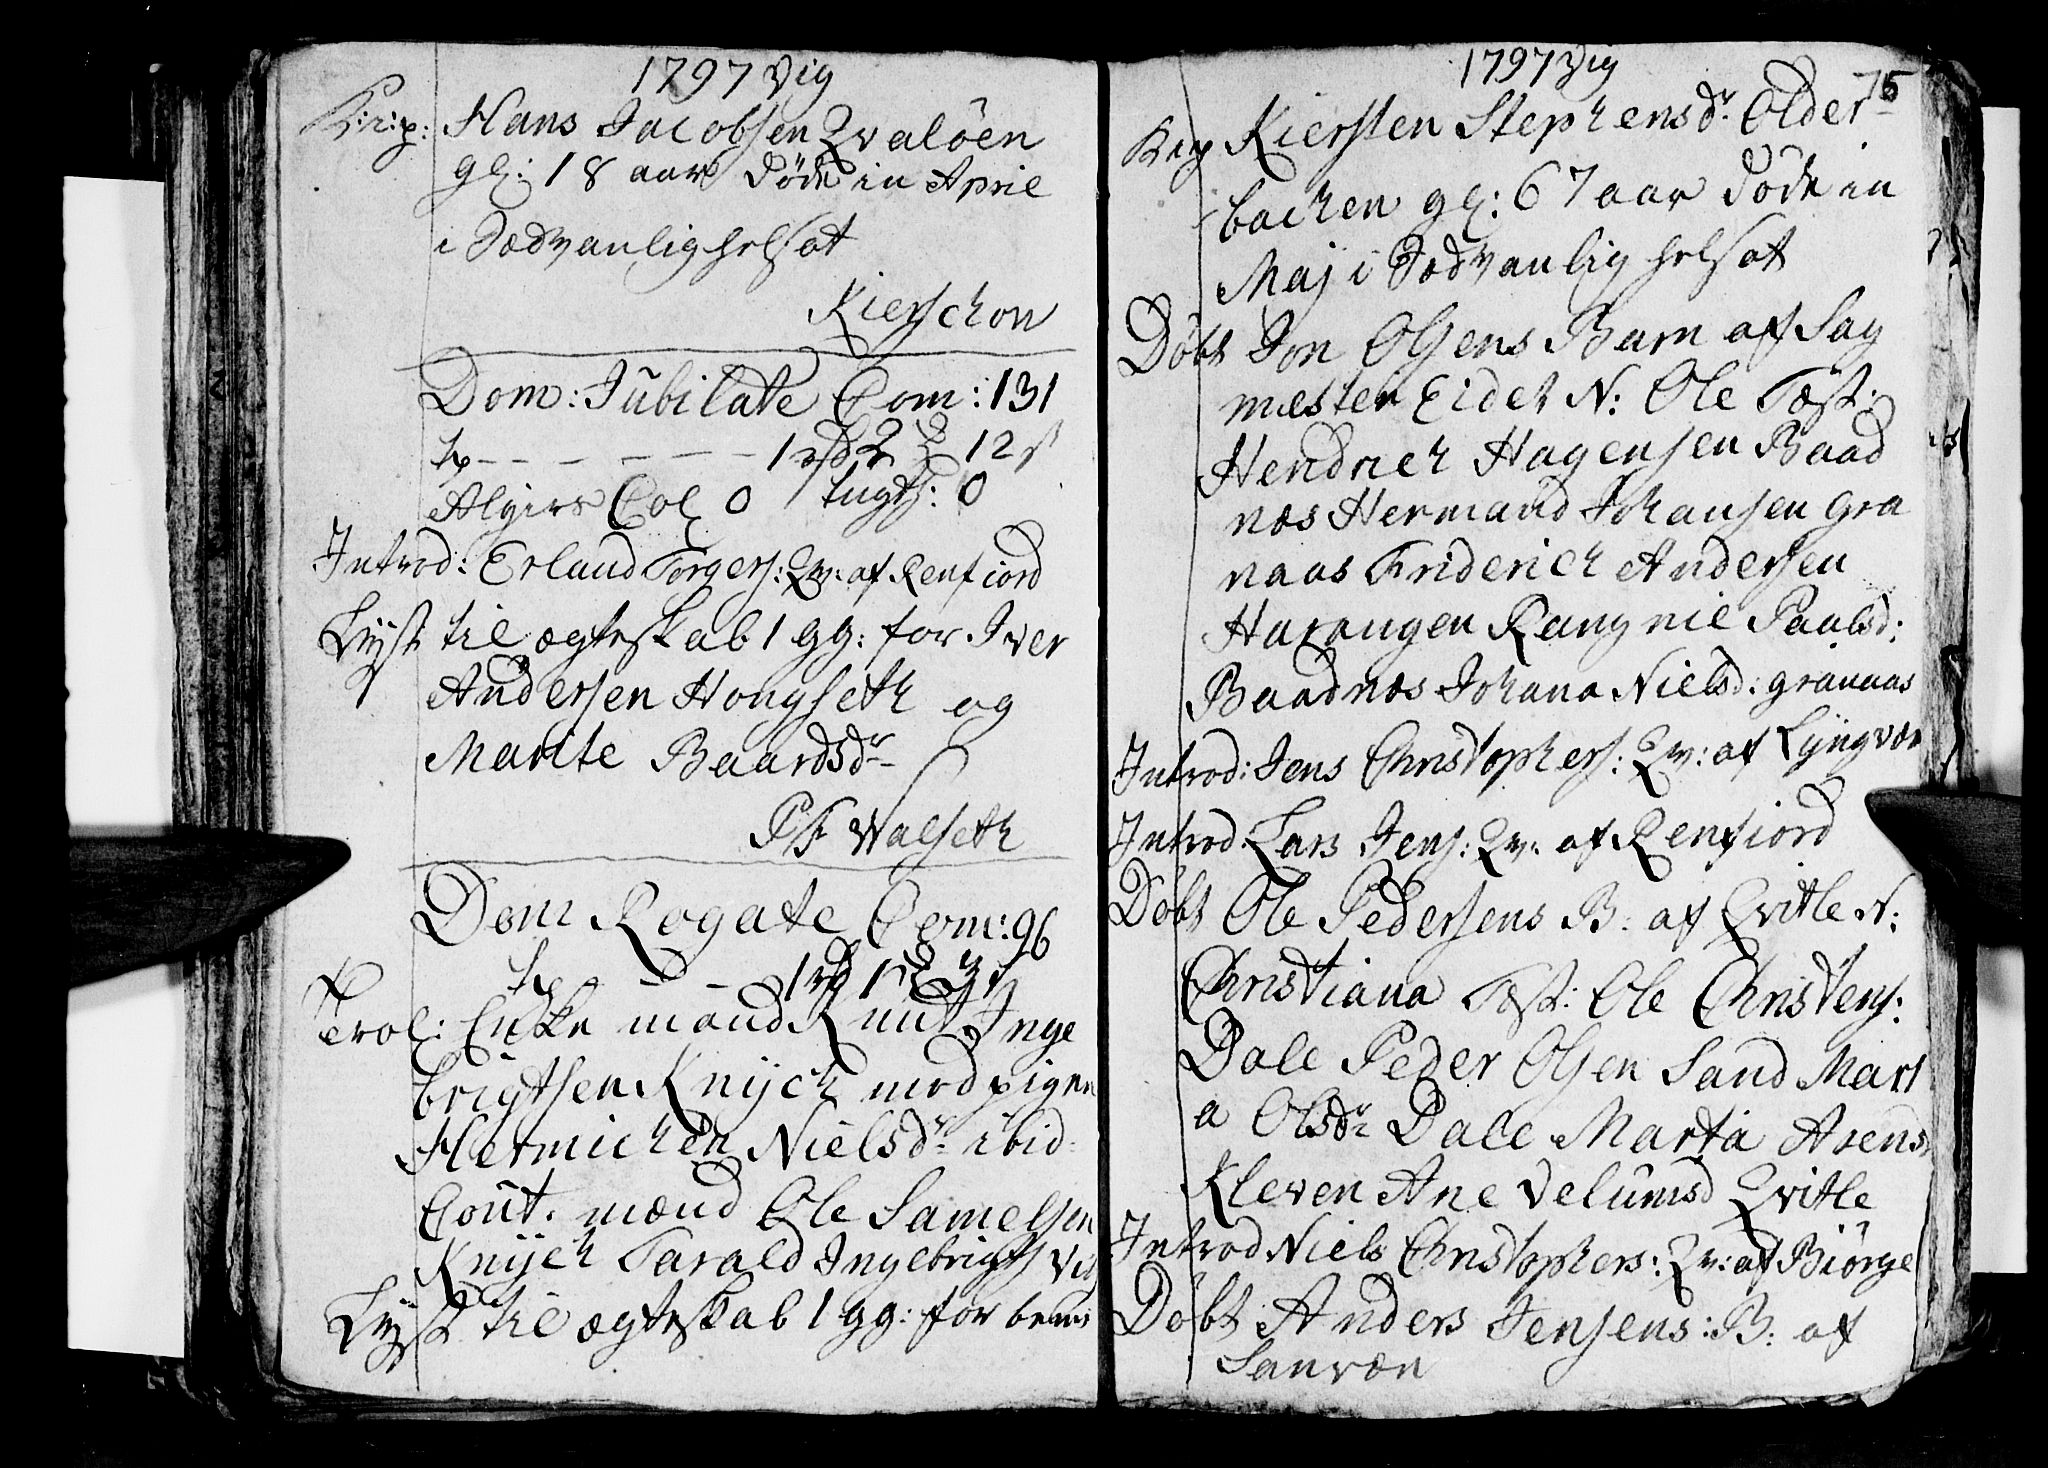 1797 Vig
K:i:p: Hans Jacobsen Qvalöen
gl: 18 aar døde in April
i Sædvanlig helsot
Kierschow
Dom: Jubilate Com: 131
1 rd 2 12 s
Algiers Col 0 tugth: 0
Introd: Erland Torgers: Qv: af Renfiord
Lyst til ægteskab 1 gg: for Iver
Andersen Hongseth og
Marite Baardsdr
PF Walseth
Dom Rogate Com: 96
1 rd 1
Trol: Enke mand Knut Inge
brigtsen Knÿch med pigen
Hermichen Nielsdr ibid
Cout. mænd Ole Samelsen
Knÿch Tarald Ingebrigts Vig
Lyst til ægteskab 1 gg: for bem
1797 Vig
75
K i p Kiersten Stephensdr Older-
bachen gl: 67 aar døde in
Maj i Sædvanlig helsot
Döbt Jon Olsens Barn af Sag
mester Eidet N: Ole Test:
Hendrich Hagensen Baad
næs Hermand Johansen Gra
naas Friderich Andersen
Harangen Rangnil Paalsd:
Baadnæs Johana Nielsd: granaas
Introd: Jens Christophers: Qv: af Lÿngvær
Introd Lars Jens: Qv: af Renfiord
Döbt Ole Pedersens B: af Qvitle N:
Christiana Test: Ole Christens:
Dale Peder Olsen Sand Mart
a Olsdr Dale Marta Arens
Kleven Ane Velumsd Qvitle
Introd Niels Christophers: Qv: af Biörge
Döbt Anders Jensens: B: af
Sanvæn